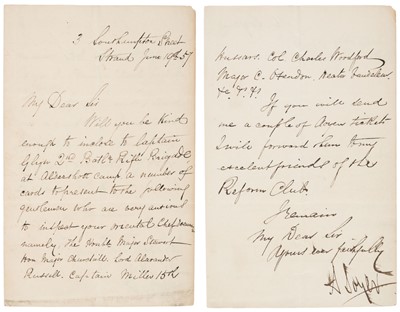 3 Southampton Street
Strand June 19th 57
My Dear Sir
Will you be kind
enough to inclose to Captain
Glyn 2nd Batt. Rifle Brigade
at Aldershott Camp a number of
cards to present to the following
gentlemen who are very anxious
to inspect your
namely, The Major Stewart
Hon Major Churchill. Lord Alexander
Russell. Captain Miller 15th
Hussars. Col Charles Woodford
Major C.
&c &c &c
If you will send
me a couple of dozen tickets
I will forward them to my
excelent friends of the
Reform Club
I remain
My Dear Sir
Yours ever faithfully
A Soyer